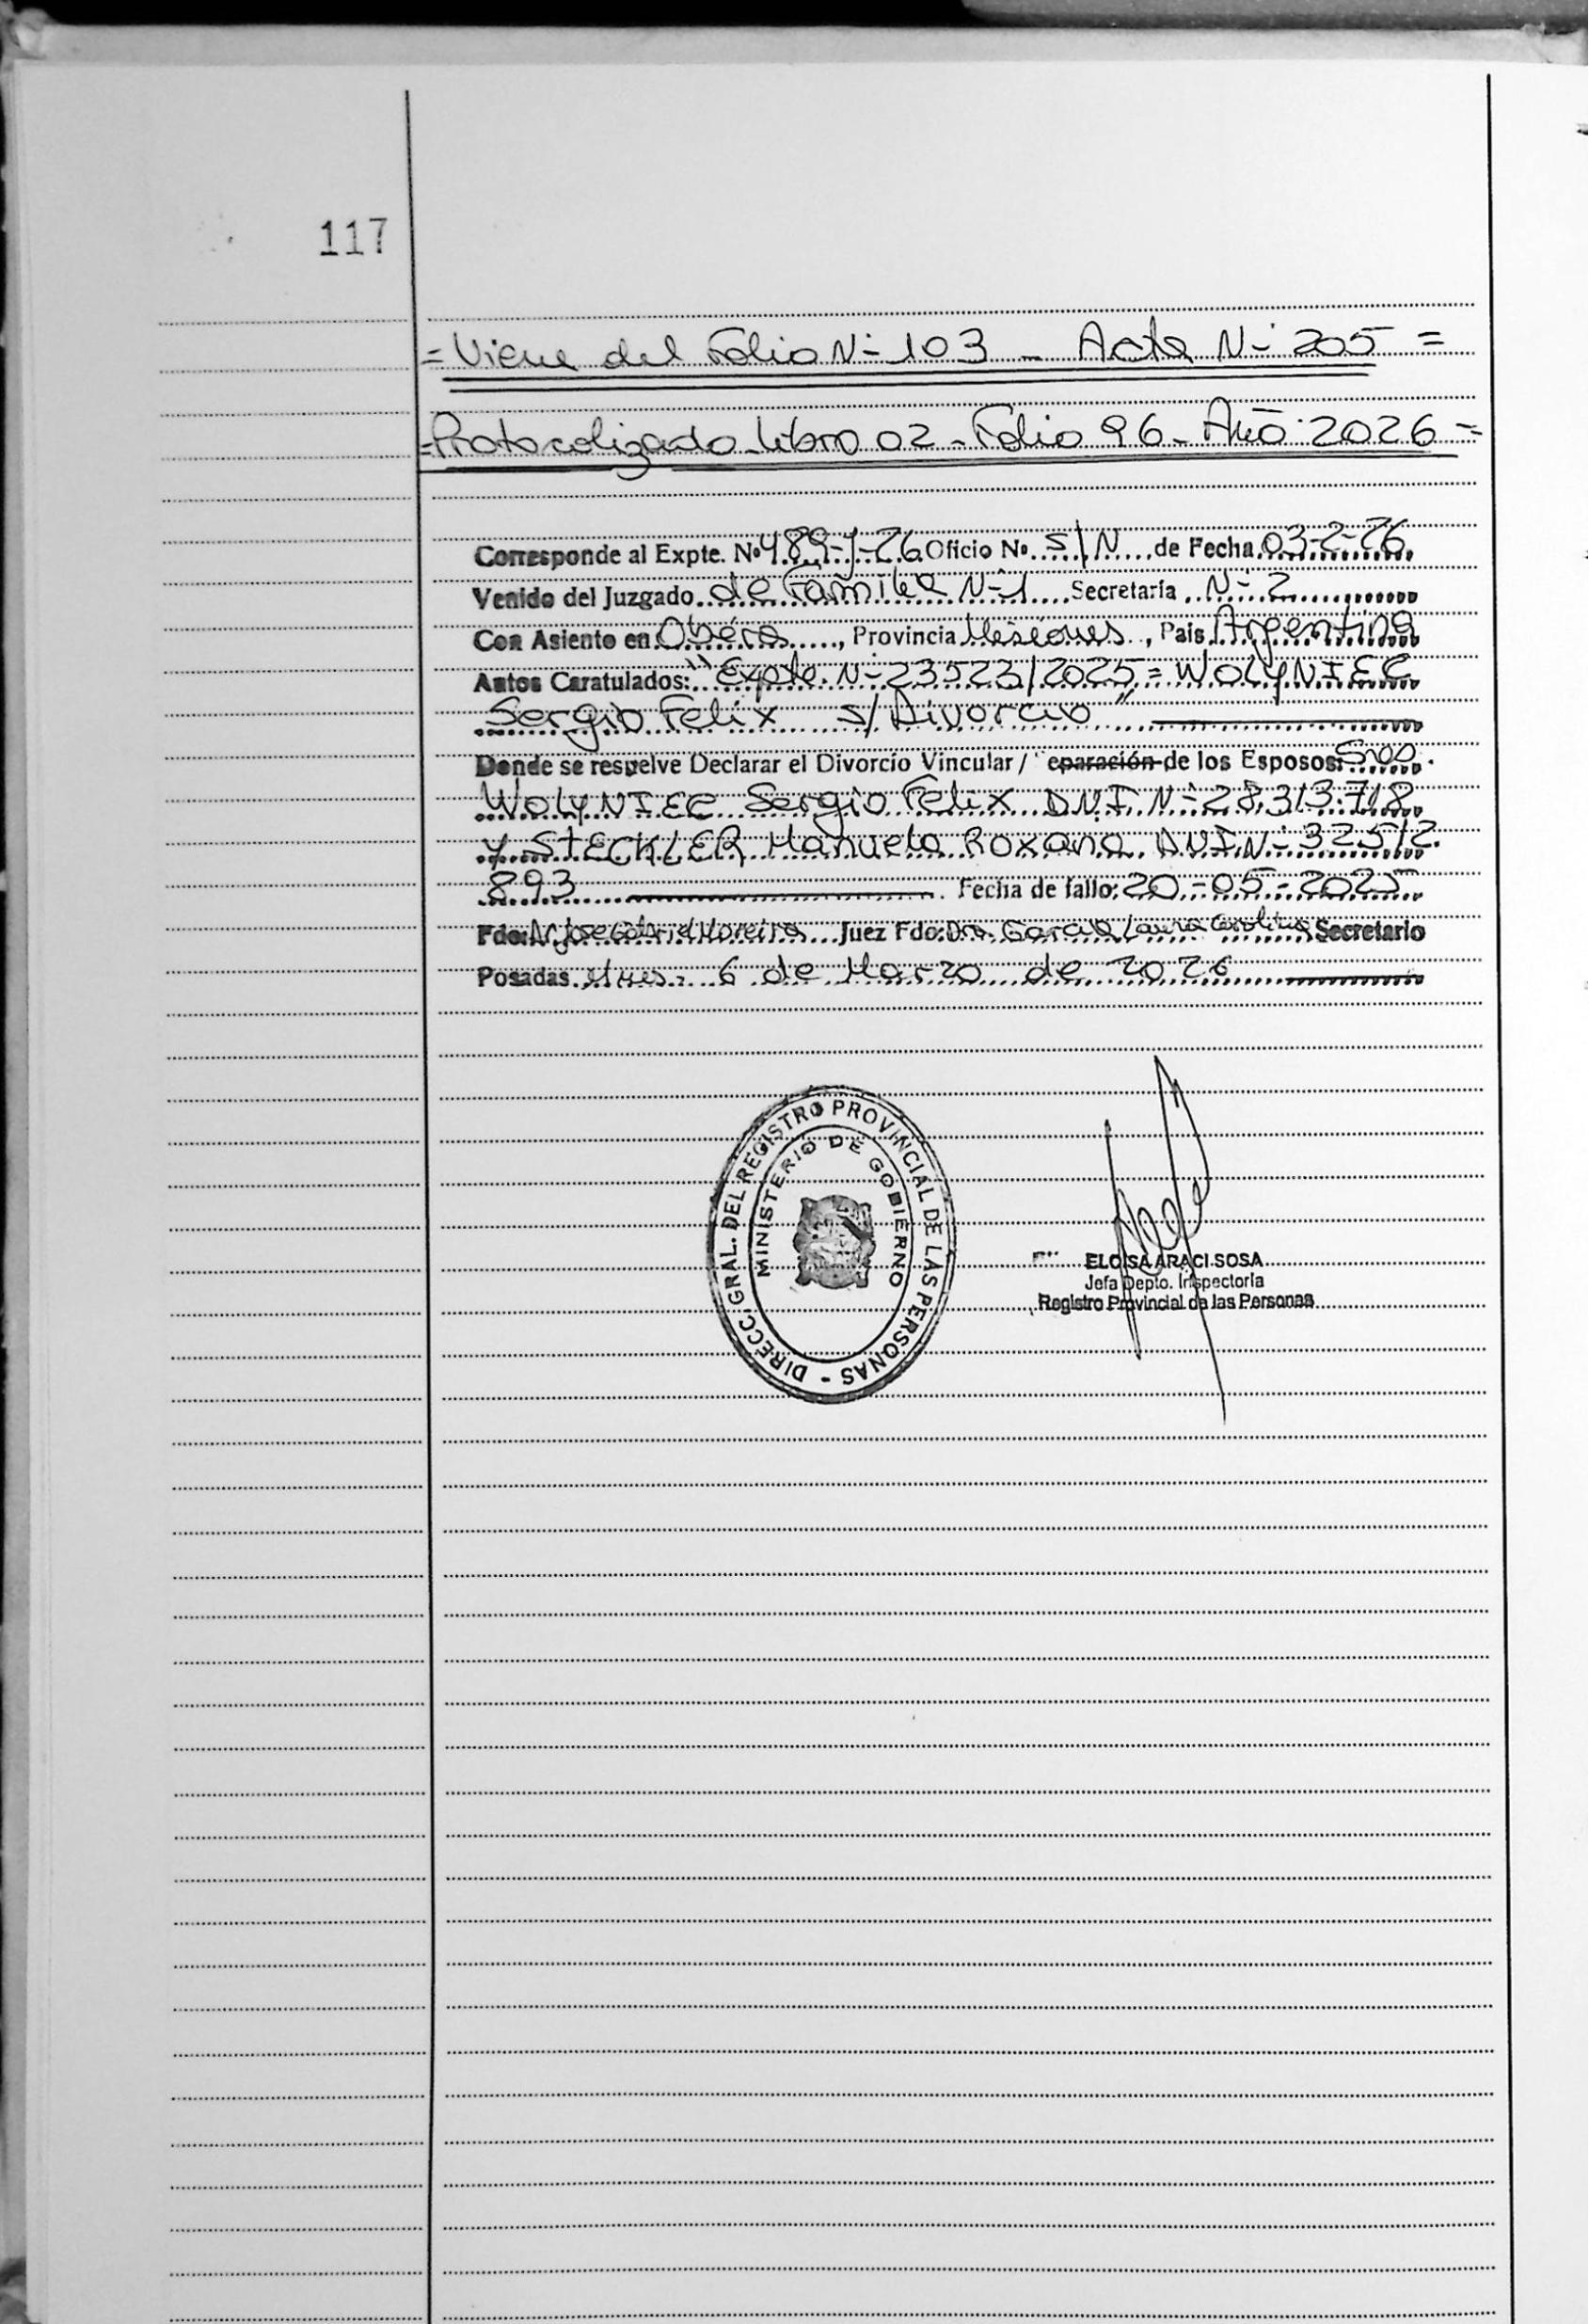 117
= Viene del Folio N- 103 - Acta N- 205 =
= Protocolizado Libro 02 - Folio 96 - Año 2026 =
Corresponde al Expte. Nº 489-J-26 Oficio Nº S/N de Fecha 03-2-26
Venido del Juzgado de Familia N-1 Secretaría N- 2
Con Asiento en Oberá, Provincia Misiones, País Argentina
Autos Caratulados: "Expte. N- 23523/2025 = WOLYNIEC
Sergio Felix s/ Divorcio"
Donde se resuelve Declarar el Divorcio Vincular / eparación de los Esposos:
WOLYNIEC Sergio Felix DNI N- 28.313.718
y STECKLER Manuela Roxana DNI N- 32512.
893. Fecha de fallo: 20-05-2025
Fdo: Dr. Jose Gabriel Moreira Juez Fdo: Dra. Garcia Laura Carolina Secretario
Posadas, Mnes. 6 de Marzo de 2026
DIRECC. GRAL. DEL REGISTRO PROVINCIAL DE LAS PERSONAS -
MINISTERIO DE GOBIERNO
ELOISA ARACI SOSA
Jefa Depto. Inspectoría
Registro Provincial de las Personas